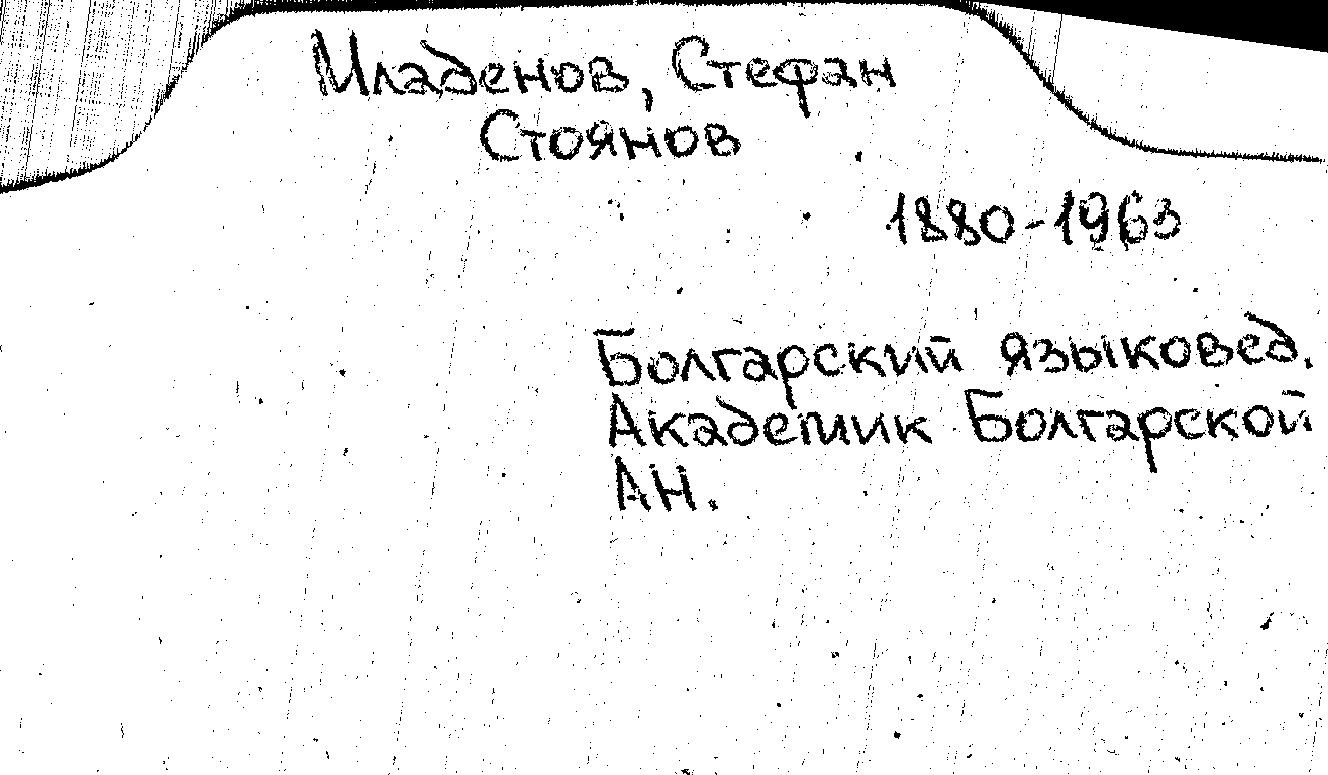 Младенов, Стефан
Стоянов
1880-1963
Болгарский языковед.
Академик Болгарской
АН.